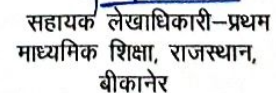 सहायक लेखाधिकारी–प्रथम
माध्यमिक शिक्षा, राजस्थान,
बीकानेर